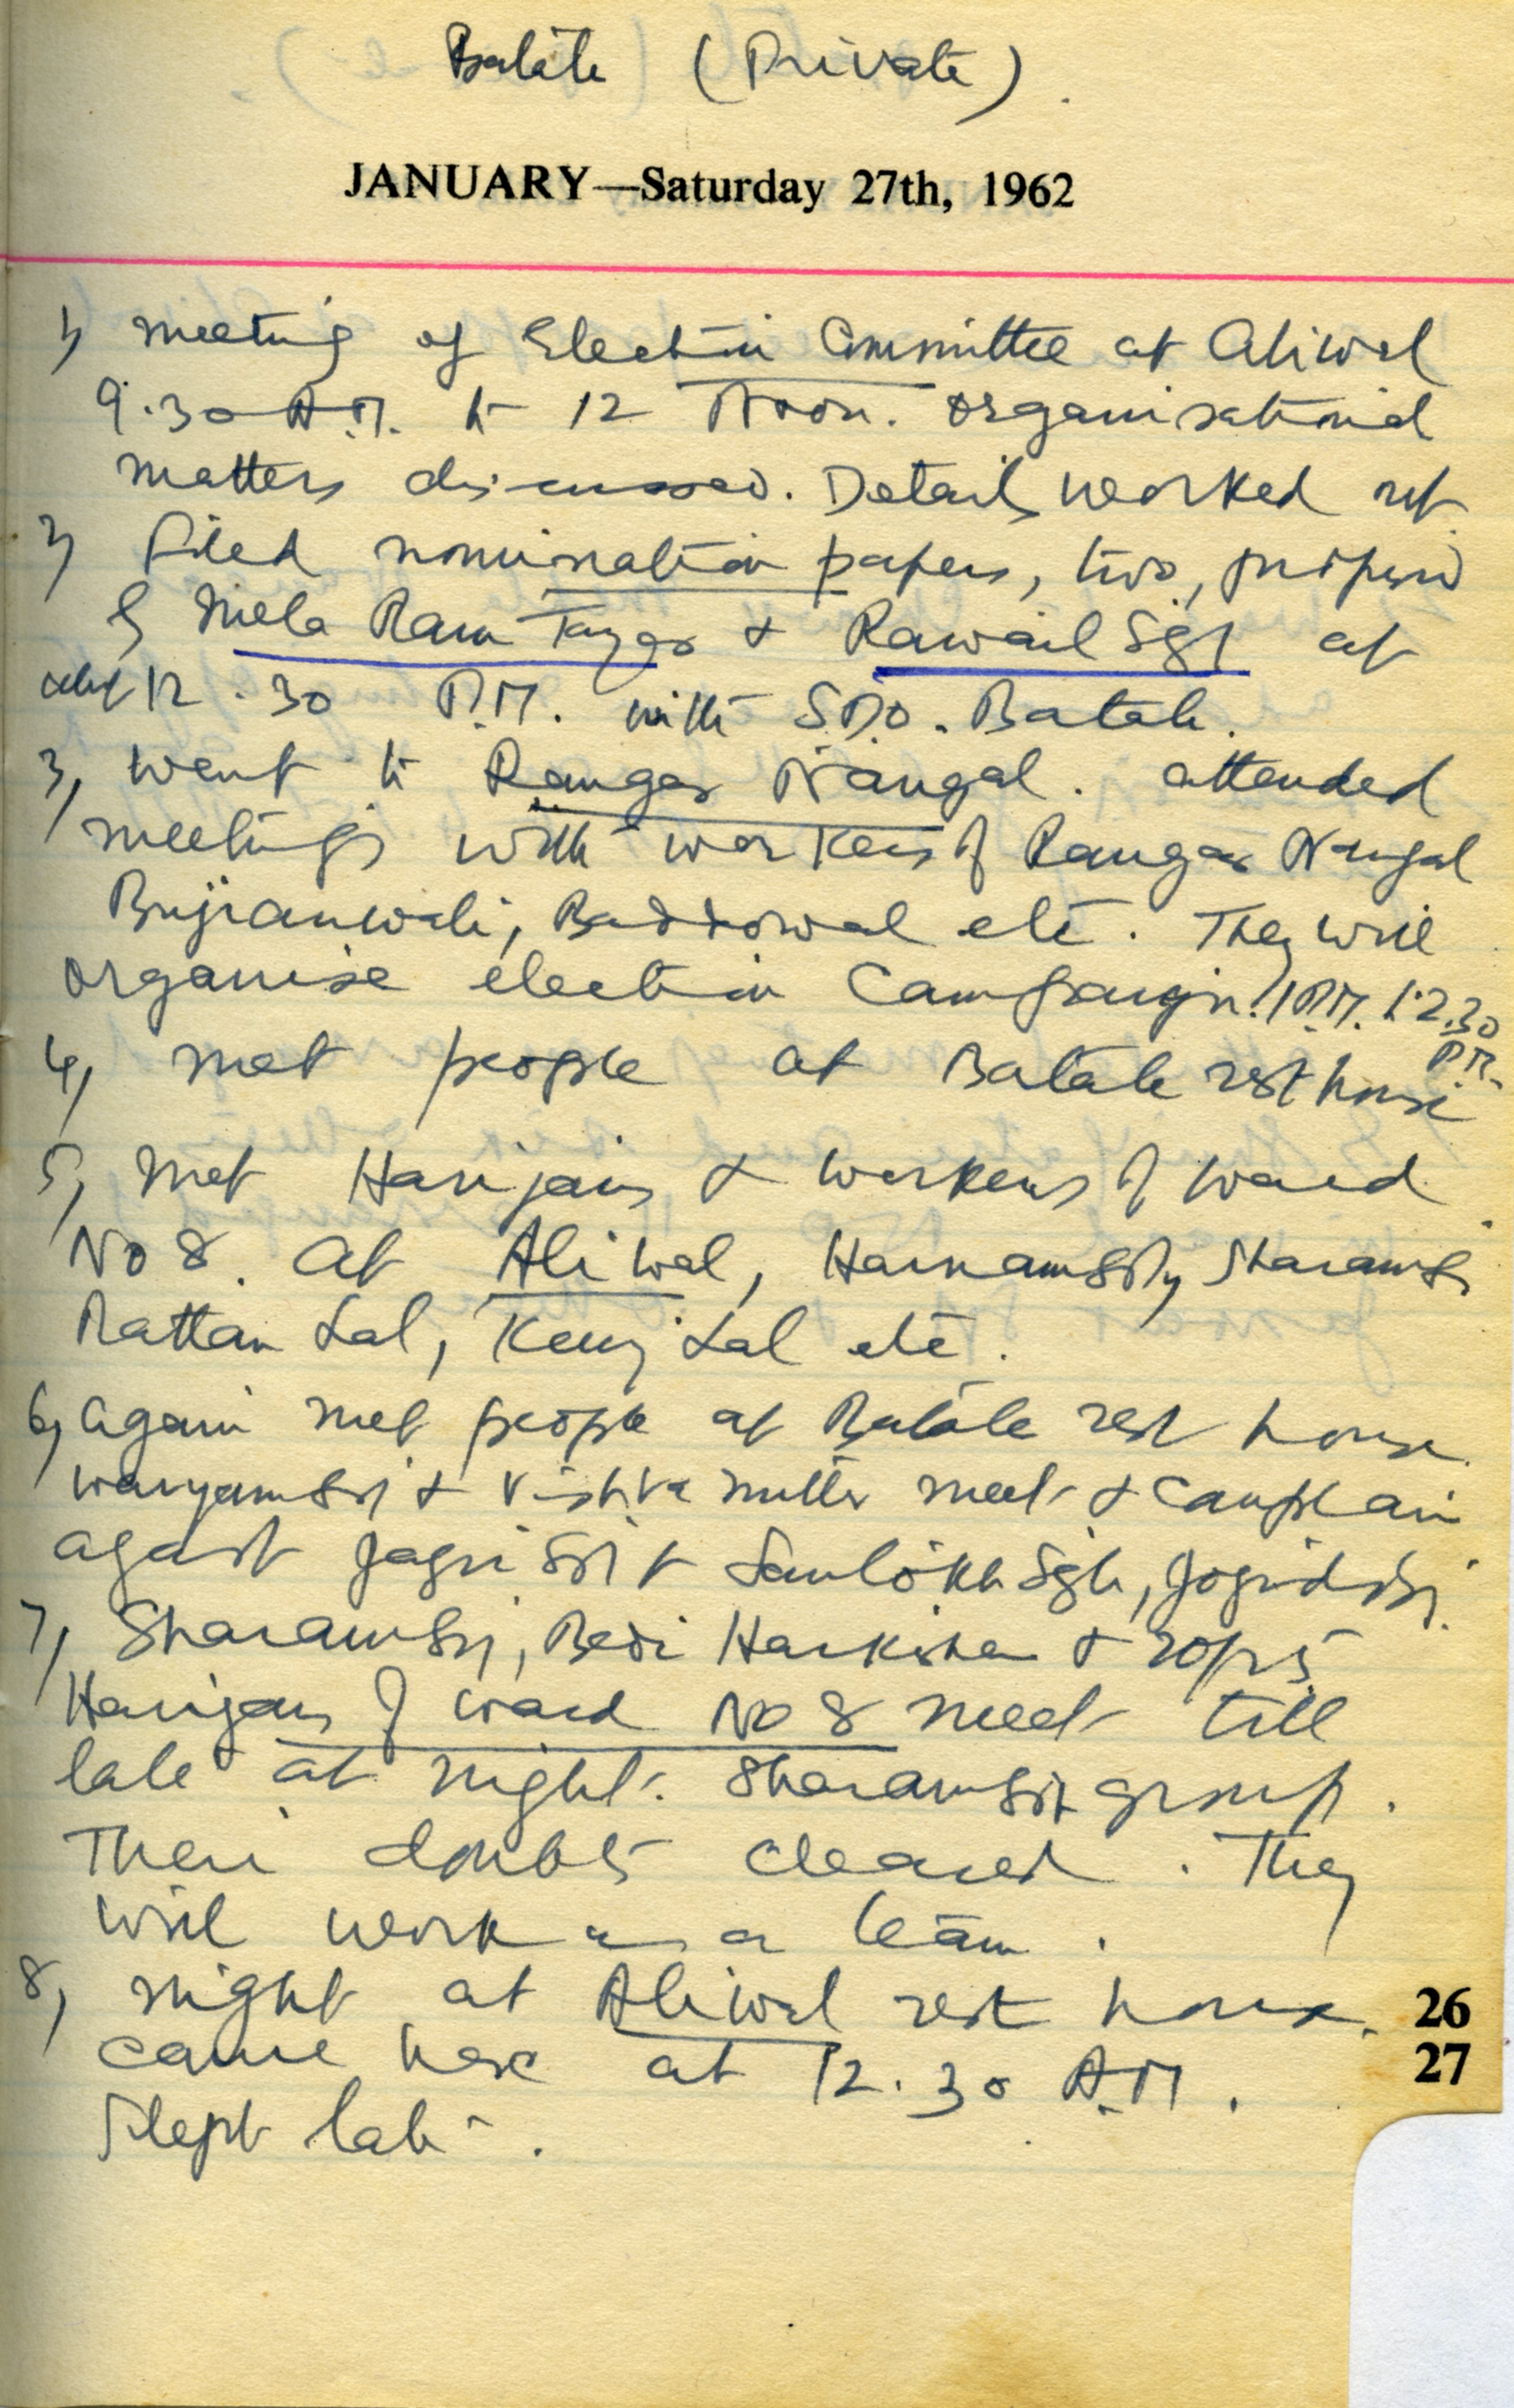 Batala (Private).
JANUARY—Saturday 27th, 1962
1) Meeting of Election Committee at Aliwal
9.30 A.M. to 12 Noon. Organisational
matters discussed. Details worked out.
2) Filed nomination papers, two, proposed
by Mela Ram & Rawail Sgh at
12.30 P.M. with S.D.O. Batala.
3) Went to Rangar Nangal. attended
meetings with workers of Rangar Nangal
Bujianwali, Baddowal etc. They will
organise election Campaign. 1 P.M. to 2.30
P.M.
4) Met people at Batala rest house
5) Met Harijans & workers of ward
No 8. at Aliwal, Harnam
Rattan Lal, Lal etc.
6) Again met people at Batala rest house.
& meet & complain
against & Santokh Sgh,
7) Bedi Harkishan &
Harijans of ward No 8 meet till
late at night. group.
Their doubts cleared. They
will work as a team.
8) Night at Aliwal rest house.
came here at 12.30 A.M.
Slept late.
26
27